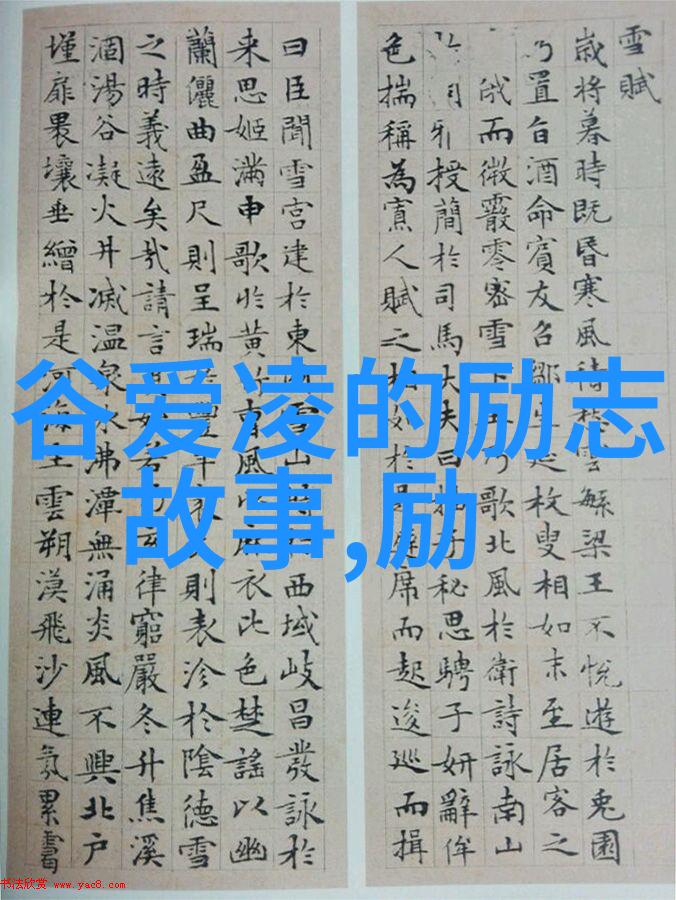 谷爱凌的励志
故事,励
雪賦
歲將暮時既昏寒風積愁雲緐梁王不悅遊於兎園
乃置旨酒命賓友召鄒生延枚叟相如末至居客之
俄而微霰零密雪下王乃歌北風於衛詩詠南山
雅授簡於司馬大夫曰抽子秘思騁子妍辭侔
色揣稱為寡人賦之相如於是避席而起逡巡而揖
曰臣聞雪宮建於東國雪山峙於西域岐昌發詠於
来思姬滿申歌於黃竹曹風以麻衣比色楚謠以幽
蘭儷曲盈尺則呈瑞於豐年袤丈則表沴於陰德雪
之時義遠矣哉請言其始若乃玄律窮嚴冬升焦溪
涸湯谷凝火井滅温泉冰沸潭無涌炎風不興北户
墐扉裸壤垂繒於是河海生雲朔漠飛沙連氛累靄
书法欣赏 www.yac8.com